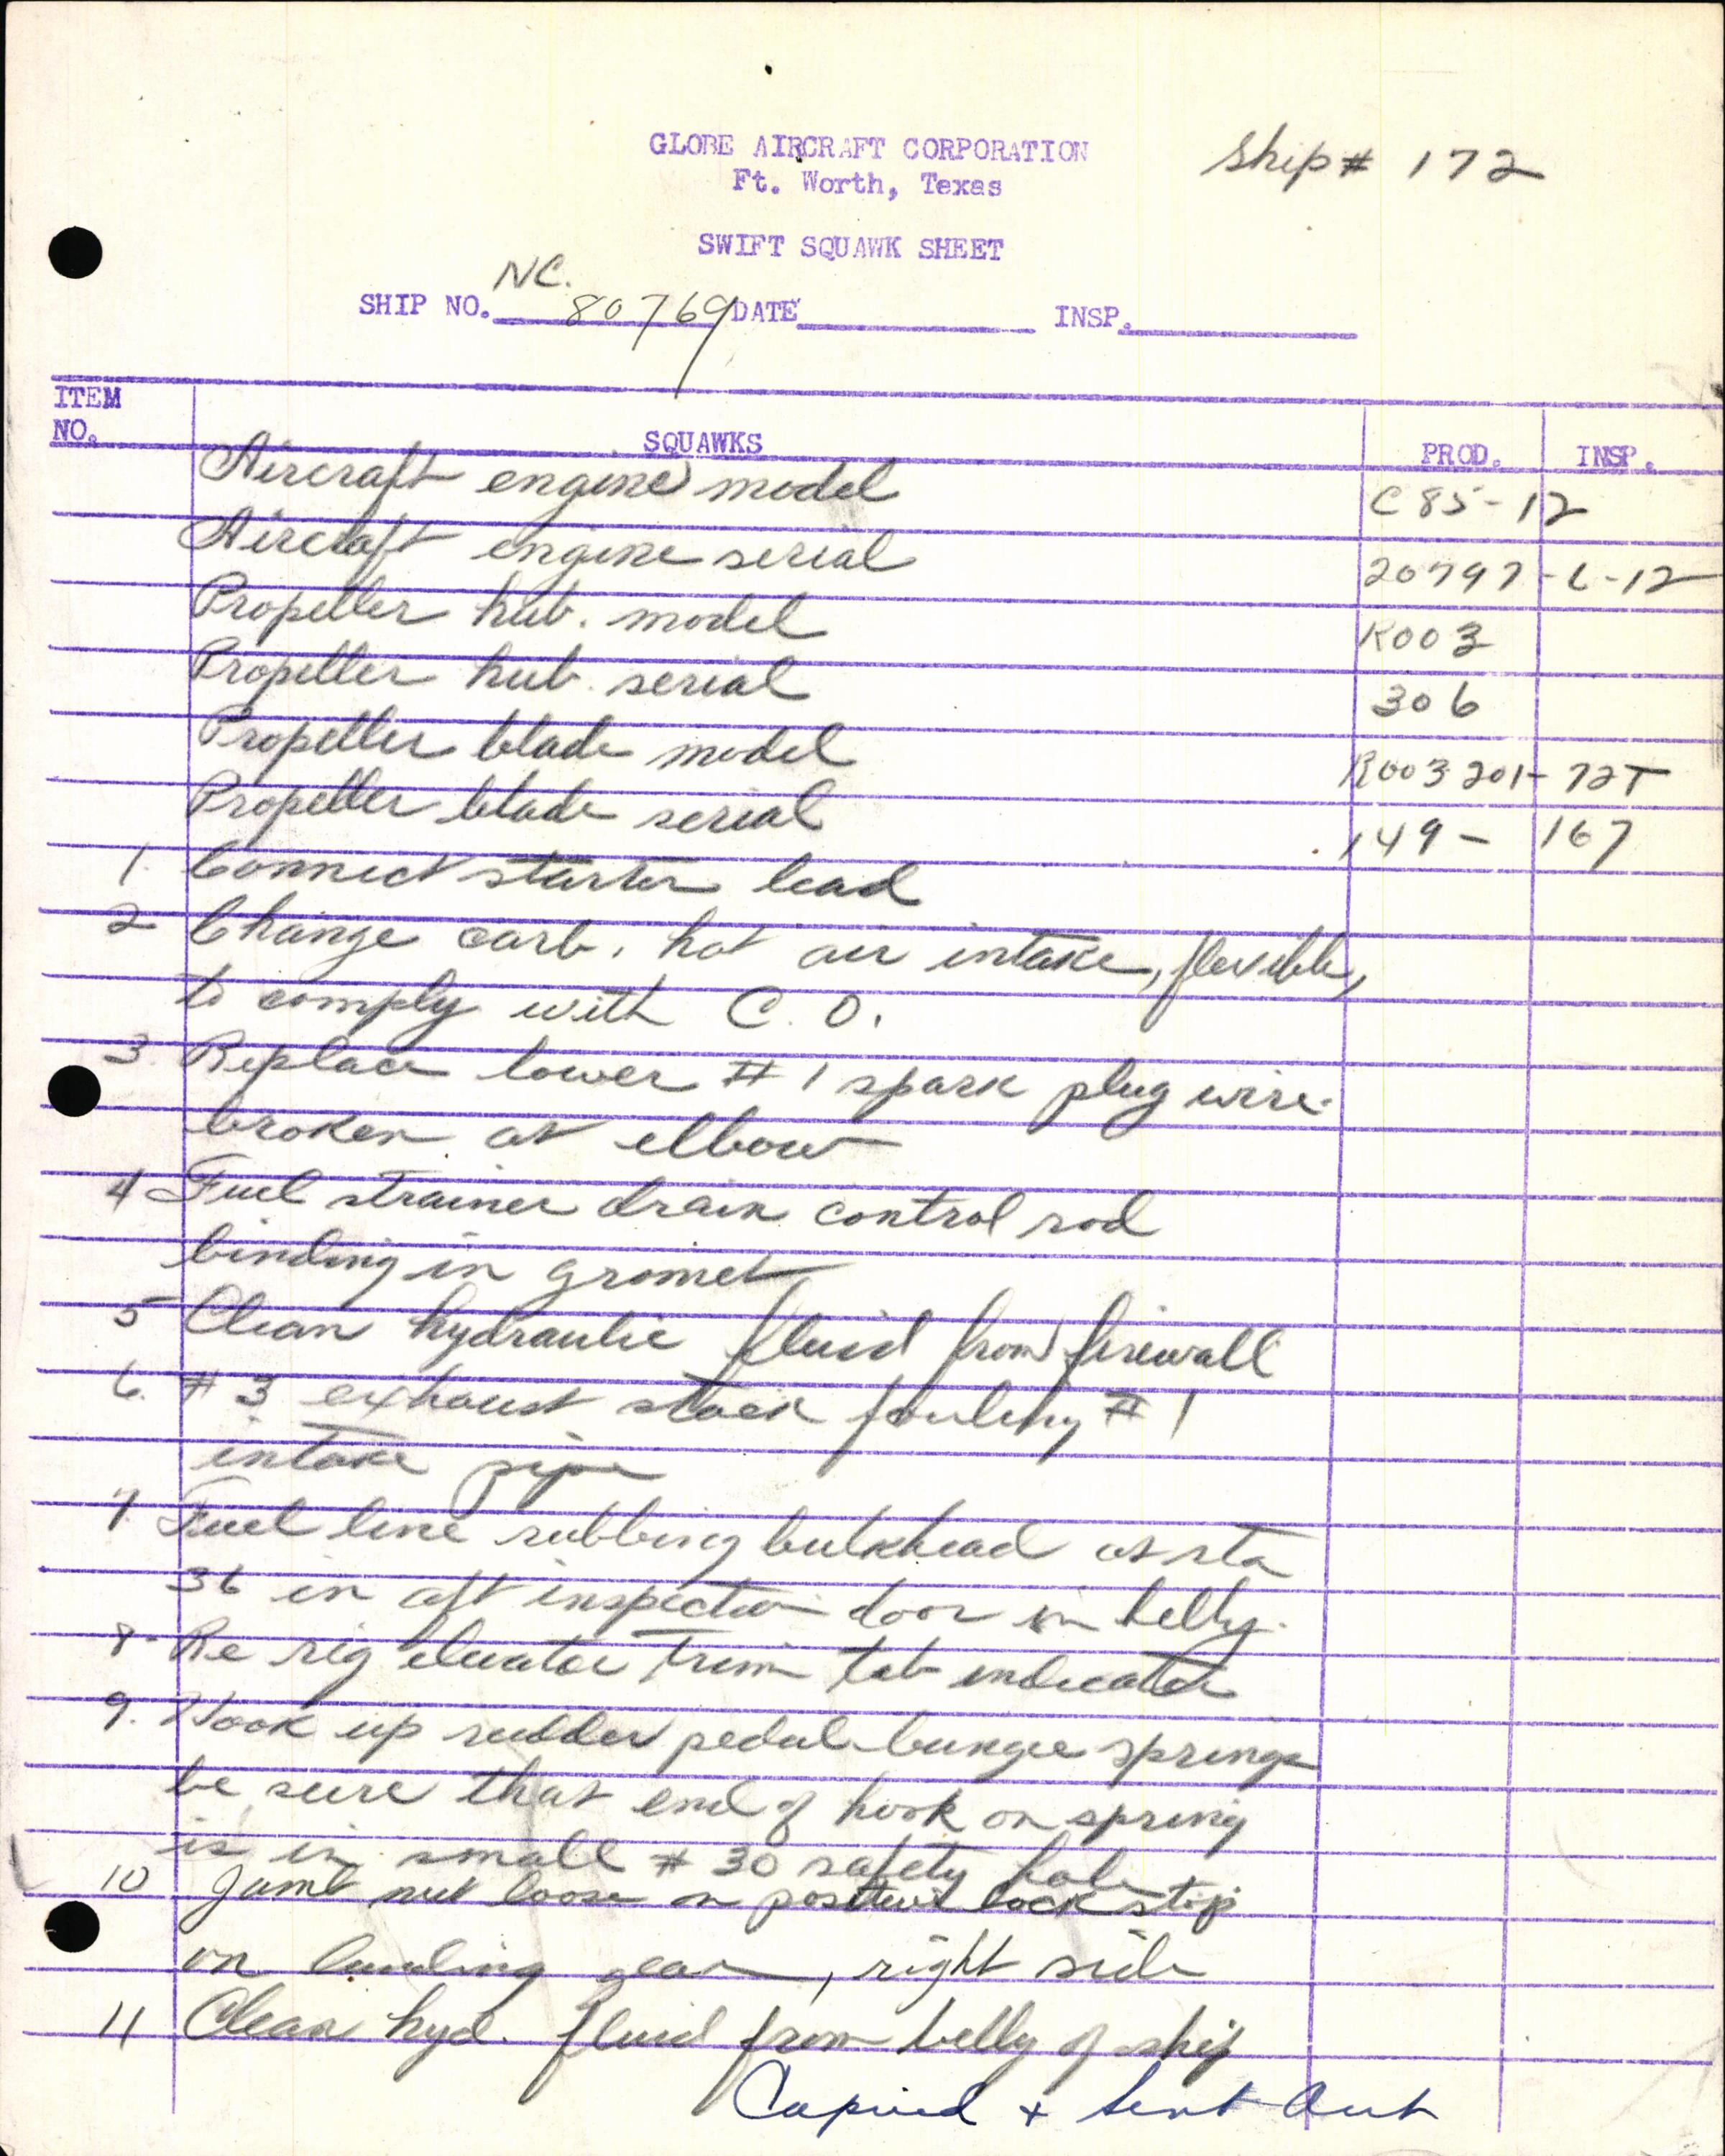 GLOBE AIRCRAFT CORPORATION
Ship # 172
Ft. Worth, Texas
SWIFT SQUAWK SHEET
NC.
SHIP NO. 80769 DATE INSP.
ITEM NO. SQUAWKS PROD. INSP.
Aircraft engine model C85-12
Aircraft engine serial 20797-6-12
Propeller hub. model R003
Propeller hub. serial 306
Propeller blade model R003 201-72T
Propeller blade serial 149- 167
1. Connect starter lead
2 Change carb. hot air intake, flexible,
to comply with C.O.
3. Replace lower #1 spark plug wire-
broken at elbow
4 Fuel strainer drain control rod
binding in gromet
5 Clean hydraulic fluid from firewall
6. #3 exhaust stack fouling #1
intake pipe
7. Fuel line rubbing bulkhead at sta
36 in aft inspection door in belly.
8. Re rig elevator trim tab indicator
9. Hook up rudder pedal bungee springs
be sure that end of hook on spring
is in small #30 safety hole
10 Jamb nut loose on positive lock stop
on landing gear, right side
11 Clean hyd. fluid from belly of ship
Copied + Sent Out